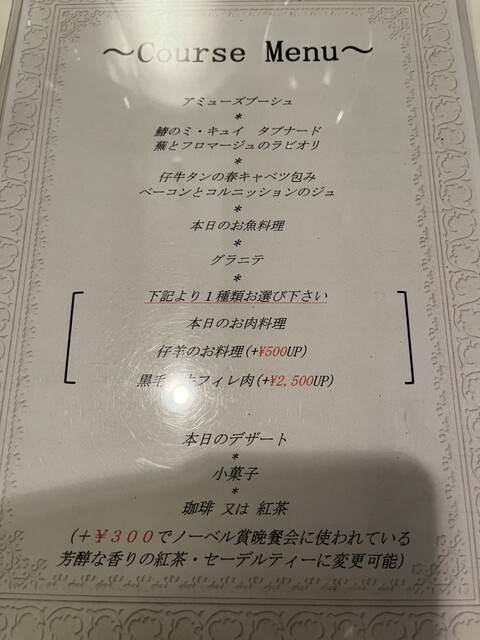 ～Course Menu～
アミューズブーシュ
*
鰆のミ・キュイ　タプナード
蕪とフロマージュのラビオリ
*
仔牛タンの春キャベツ包み
ベーコンとコルニッションのジュ
*
本日のお魚料理
*
グラニテ
*
下記より１種類お選び下さい
本日のお肉料理
仔羊のお料理(+¥500UP)
黒毛 牛フィレ肉(+¥2,500UP)
本日のデザート
*
小菓子
*
珈琲 又は 紅茶
(＋￥３００でノーベル賞晩餐会に使われている
芳醇な香りの紅茶・セーデルティーに変更可能)